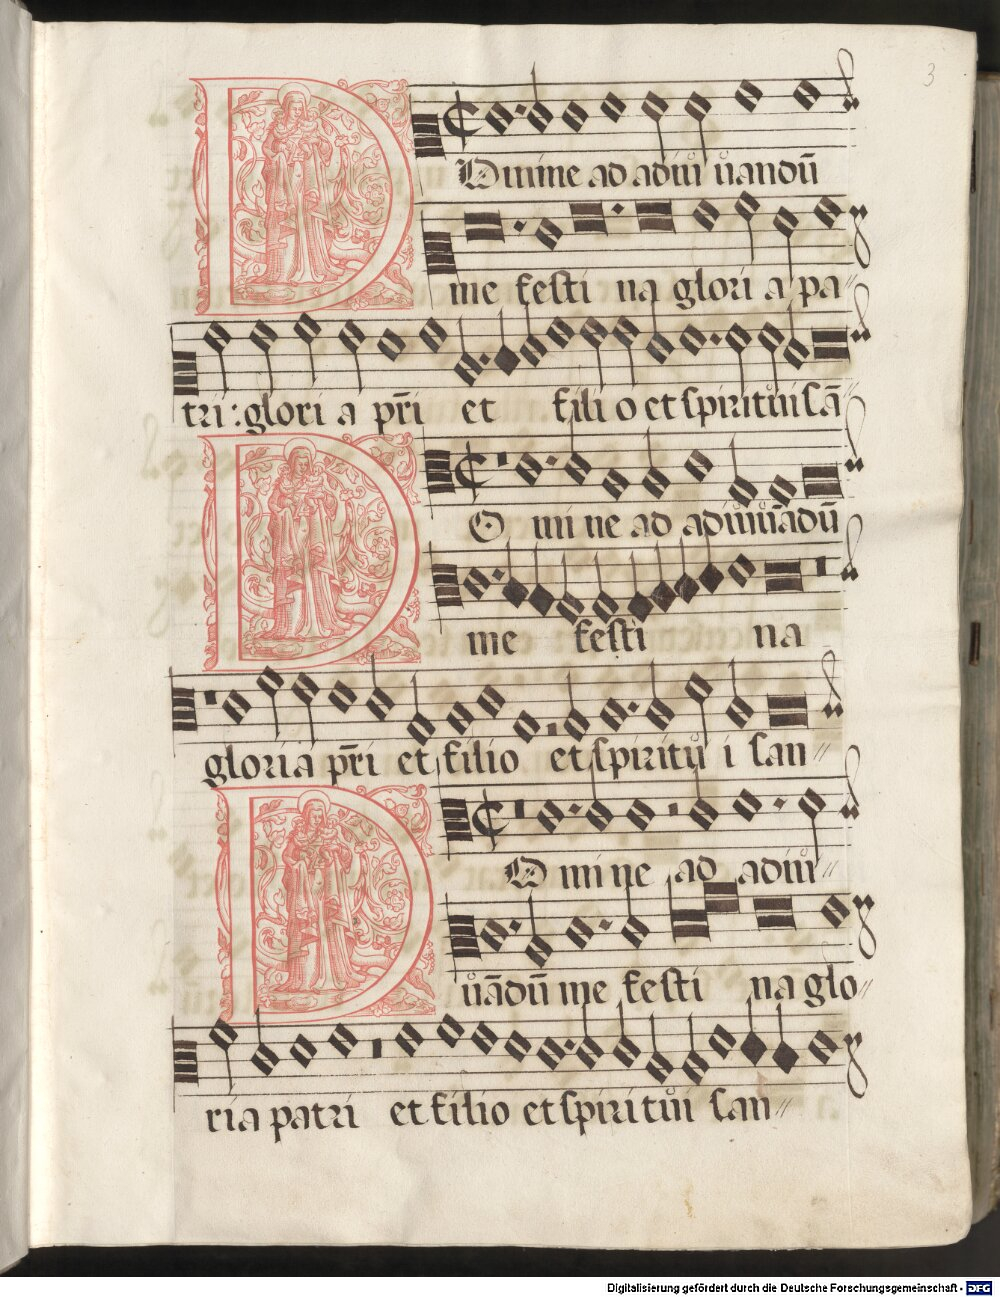 3
Domine ad adiuuandū
me festi na glori a pa
tri : glori a pr̄i et filio et spirituisā
Domine ad adiuuādū
me festi na
gloria pr̄i et filio et spiritu i san
Domine ad adiu
uādū me festi na glo
ria patri et filio et spiritui san
Digitalisierung gefördert durch die Deutsche Forschungsgemeinschaft - DFG